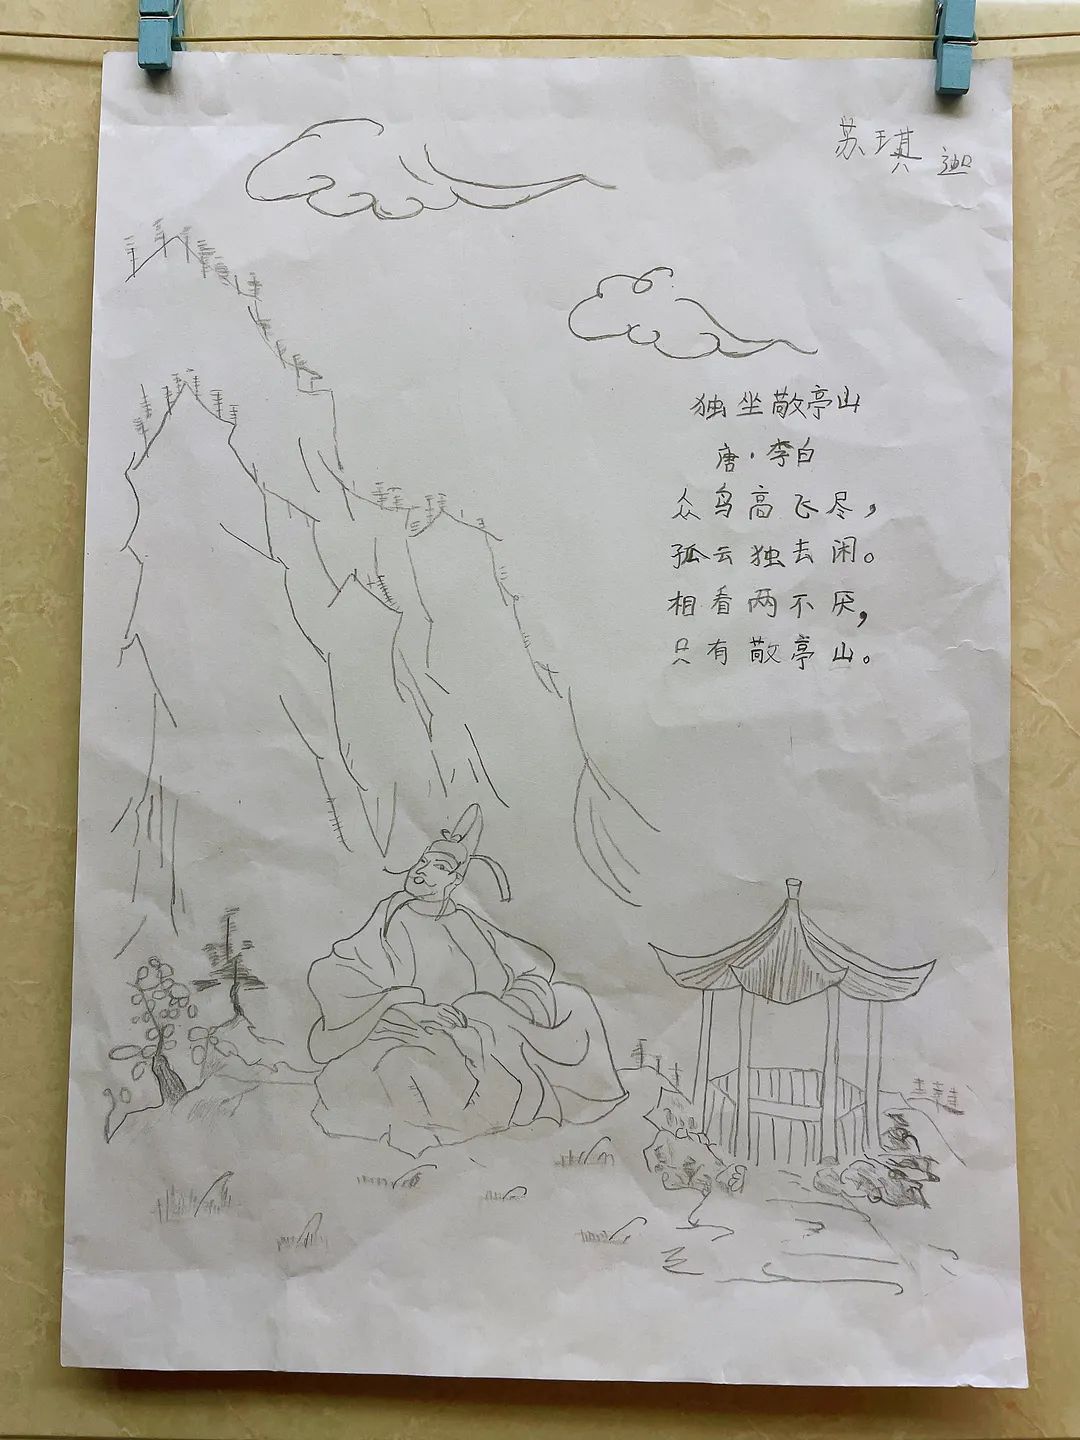 苏琪迦
独坐敬亭山
唐·李白
众鸟高飞尽，
孤云独去闲。
相看两不厌，
只有敬亭山。